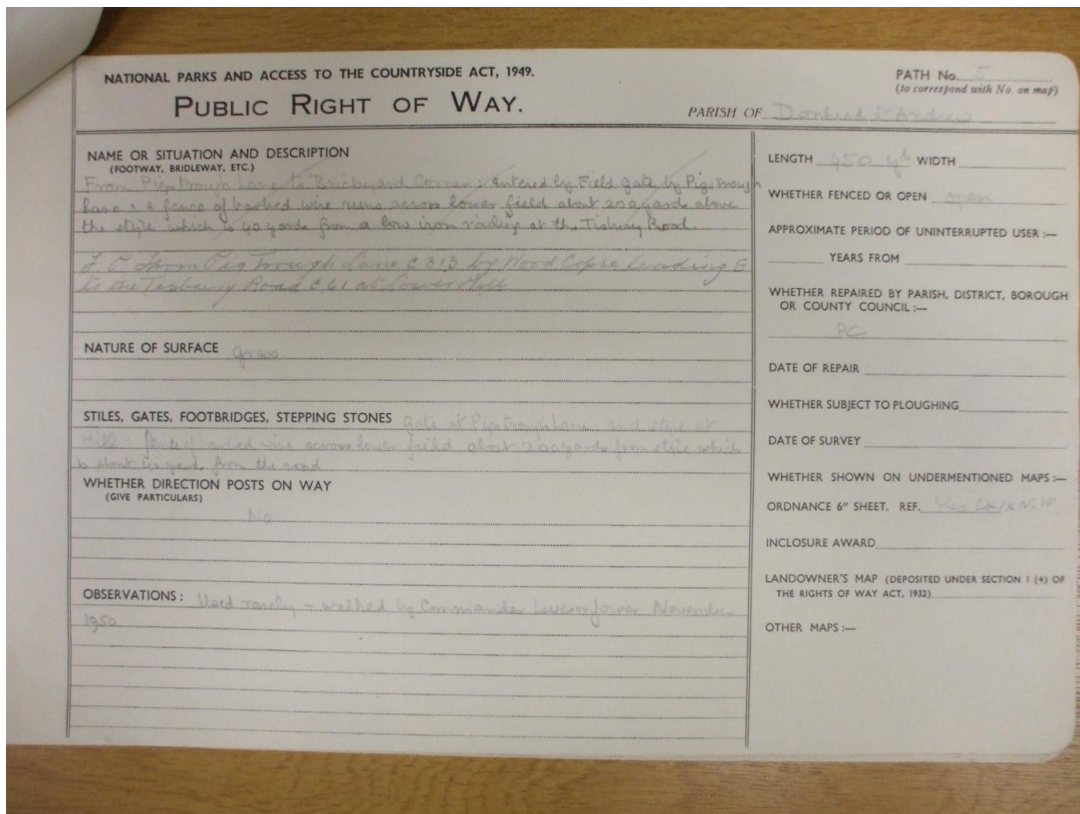 NATIONAL PARKS AND ACCESS TO THE COUNTRYSIDE ACT, 1949.
PUBLIC RIGHT OF WAY.
PATH No. 5
(to correspond with No. on map)
PARISH OF Donhead St Andrew
NAME OR SITUATION AND DESCRIPTION
(FOOTWAY, BRIDLEWAY, ETC.)
From Pigstrough Lane to Brickyard Corner: entered by Field gate by Pigstrough
lane: a fence of barbed wire runs across lower field about 200 yards above
the style which is 40 yards from a low iron railing at the Tisbury Road.
F.P. From Pig Trough Lane C 313 by Wood Copse leading E
to the Tisbury Road C 61 at Lower Hill
NATURE OF SURFACE grass
STILES, GATES, FOOTBRIDGES, STEPPING STONES gate at Pigstrough lane and stile at
Hill: fence of barbed wire across lower field about 200 yards from stile which
is about 40 yards from the road
WHETHER DIRECTION POSTS ON WAY
(GIVE PARTICULARS)
No
OBSERVATIONS: Used rarely - walked by Commander November
1950
LENGTH 450 yds WIDTH
WHETHER FENCED OR OPEN open
APPROXIMATE PERIOD OF UNINTERRUPTED USER:—
YEARS FROM
WHETHER REPAIRED BY PARISH, DISTRICT, BOROUGH
OR COUNTY COUNCIL:—
PC
DATE OF REPAIR
WHETHER SUBJECT TO PLOUGHING
DATE OF SURVEY
WHETHER SHOWN ON UNDERMENTIONED MAPS:—
ORDNANCE 6" SHEET. REF. Yes LXIX N.W
INCLOSURE AWARD
LANDOWNER'S MAP (DEPOSITED UNDER SECTION 1 (4) OF
THE RIGHTS OF WAY ACT, 1932)
OTHER MAPS:—